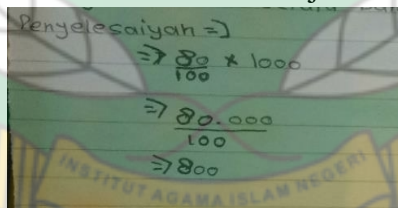 Penyelesaiyan =>
=> 80/100 * 1000
=> 80.000
100
=> 800
INSTITUT AGAMA ISLAM NEGERI